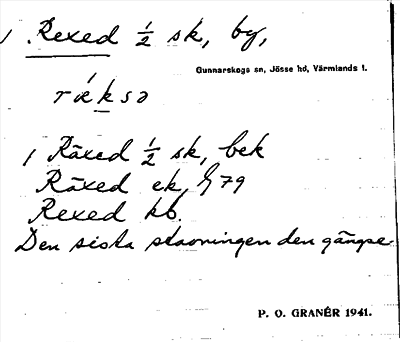 1 Rexed ½ sk, by,
Gunnarskogs sn, Jösse hd, Värmlands l.
rǽksə
1 Räxed ½ sk, bek
Räxed ek, § 79
Rexed kb.
Den sista stavningen den gängse
P. O. GRANÉR 1941.